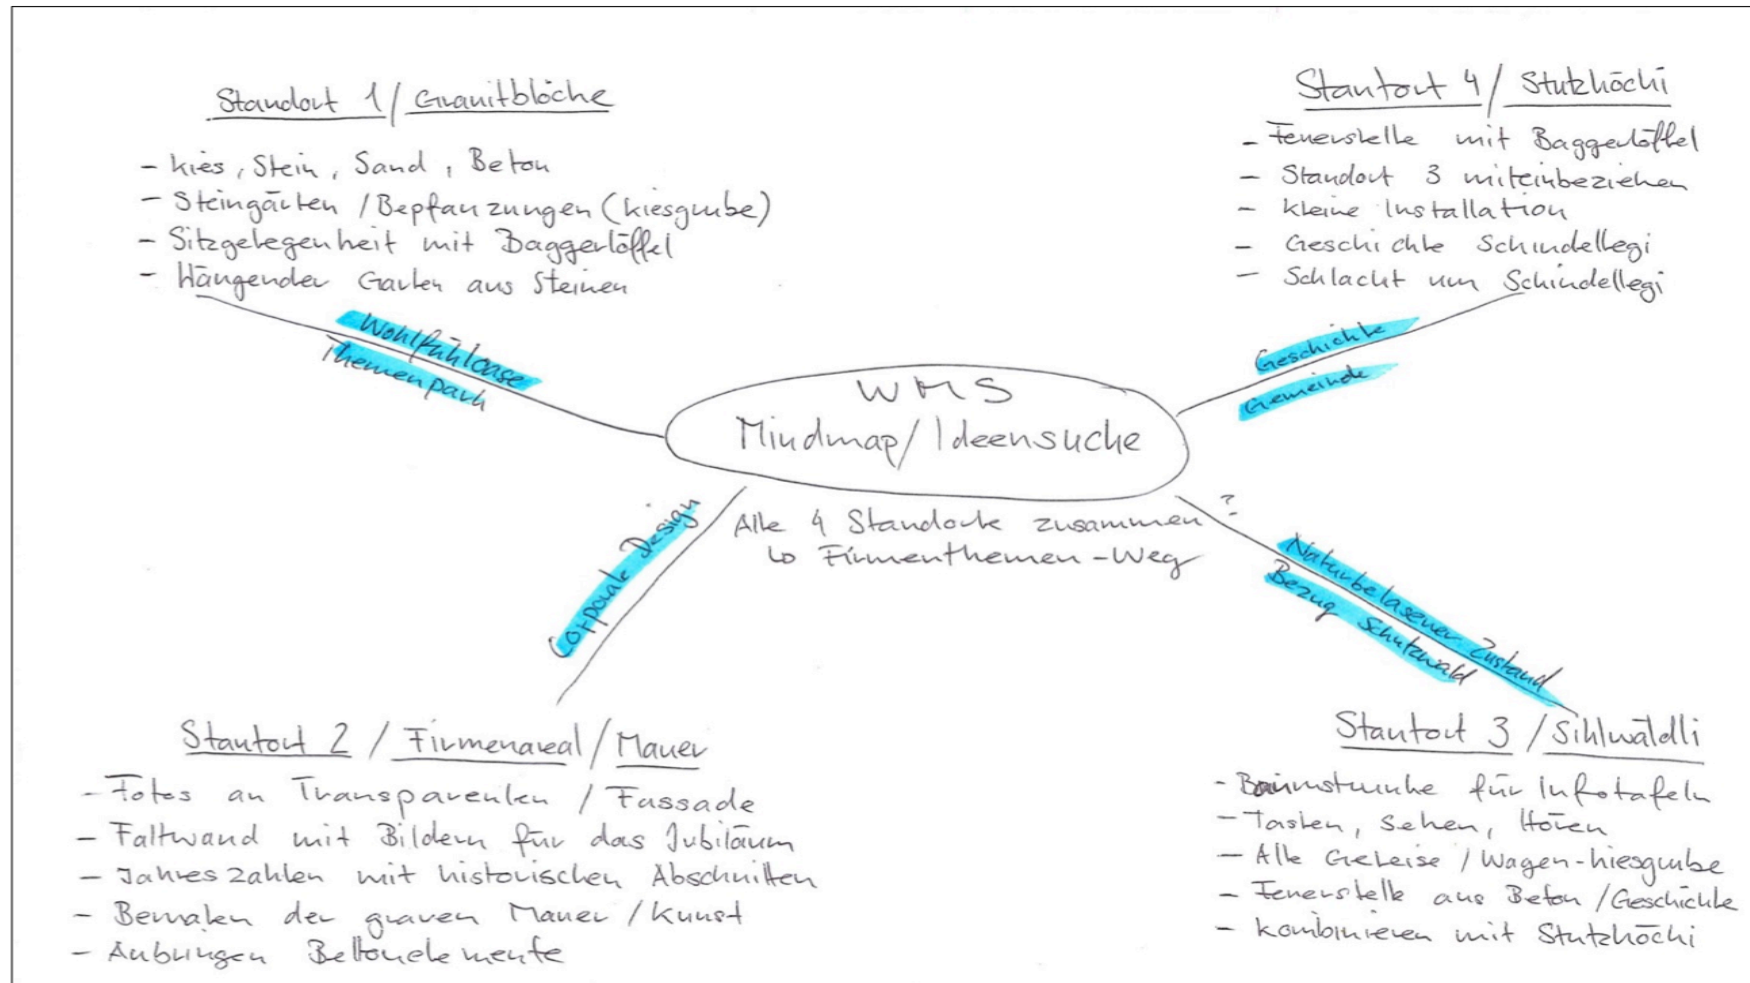 Standort 1 / Granitblöcke
- Kies, Stein, Sand, Beton
- Steingärten / Bepfanzungen (Kiesgrube)
- Sitzgelegenheit mit Baggerlöffel
- Hängender Garten aus Steinen
Wohlfühloase
Themenpark
Stantort 4 / Stutzhöchi
- Feuerstelle mit Baggerlöffel
- Standort 3 miteinbeziehen
- Kleine Installation
- Geschichte Schindellegi
- Schlacht um Schindellegi
Geschichte
Gemeinde
WMS
Mindmap / Ideensuche
Alle 4 Standorte zusammen ?
↳ Firmenthemen-Weg
Corporate Design
Naturbelasener Zustand
Bezug Schutzwald
Stantort 2 / Firmenareal / Mauer
- Fotos an Transparenten / Fassade
- Faltwand mit Bildern für das Jubiläum
- Jahreszahlen mit historischen Abschnitten
- Bemalen der grauen Mauer / Kunst
- Anbringen Bettonelemente
Stantort 3 / Sihlwäldli
- Baumstrunke für Infotafeln
- Tasten, Sehen, Hören
- Alte Geleise / Wagen-Kiesgrube
- Feuerstelle aus Beton / Geschichte
- Kombinieren mit Stutzhöchi